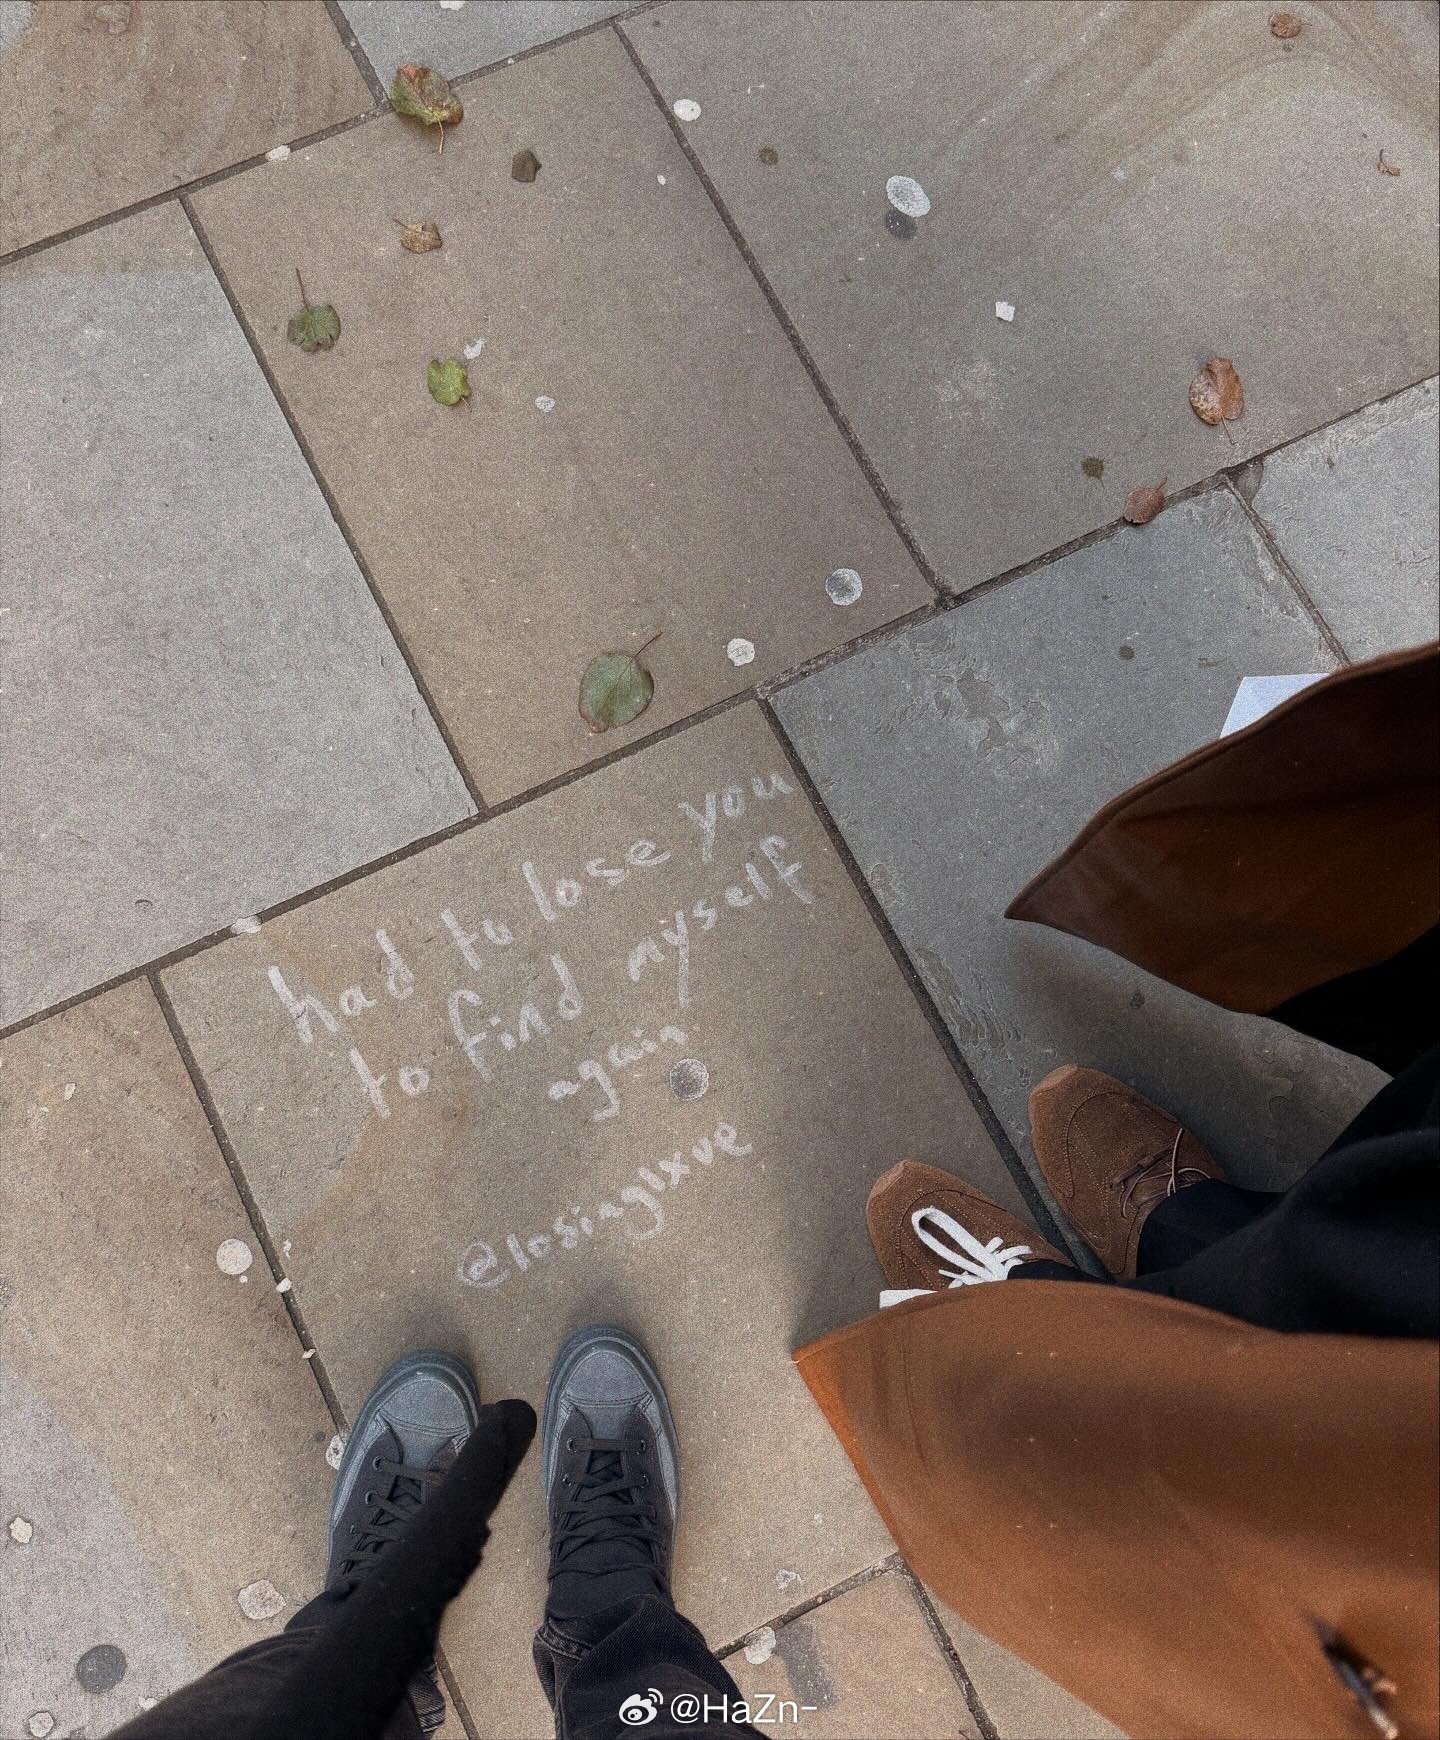 had to lose you
to find myself
again
@losinglxve
@HaZn-